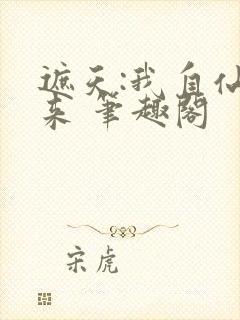 遮天:我自仙
来 笔趣阁
宋虎